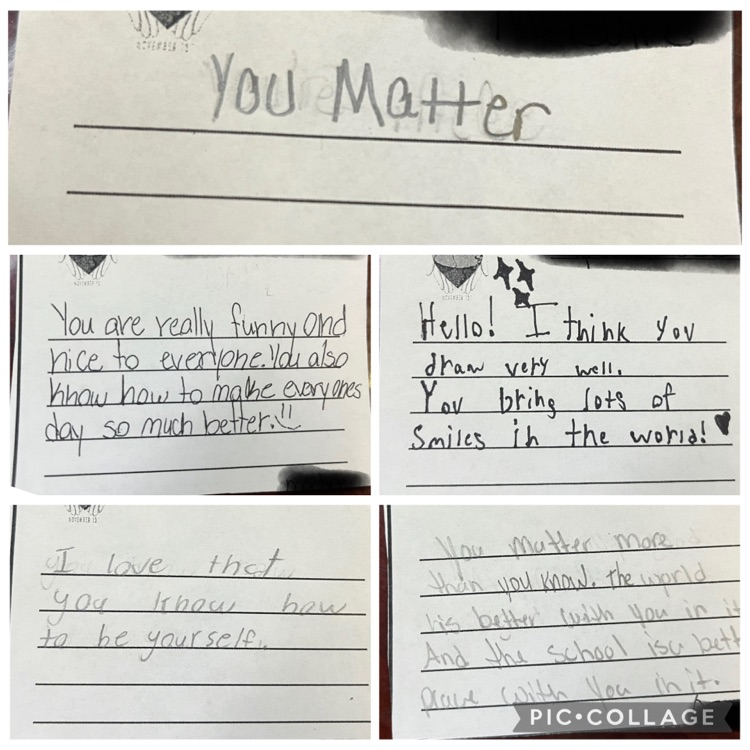 NOVEMBER 13
You Matter
NOVEMBER 13
You are really funny and
nice to everyone. You also
know how to make everyones
day so much better.
NOVEMBER 13
Hello! I think you
draw very well.
You bring lots of
smiles in the world!
NOVEMBER 13
I love that
you know how
to be yourself.
You matter more
than you know. The world
is better with you in it
And the school is a bett
place with you in it.
PIC•COLLAGE